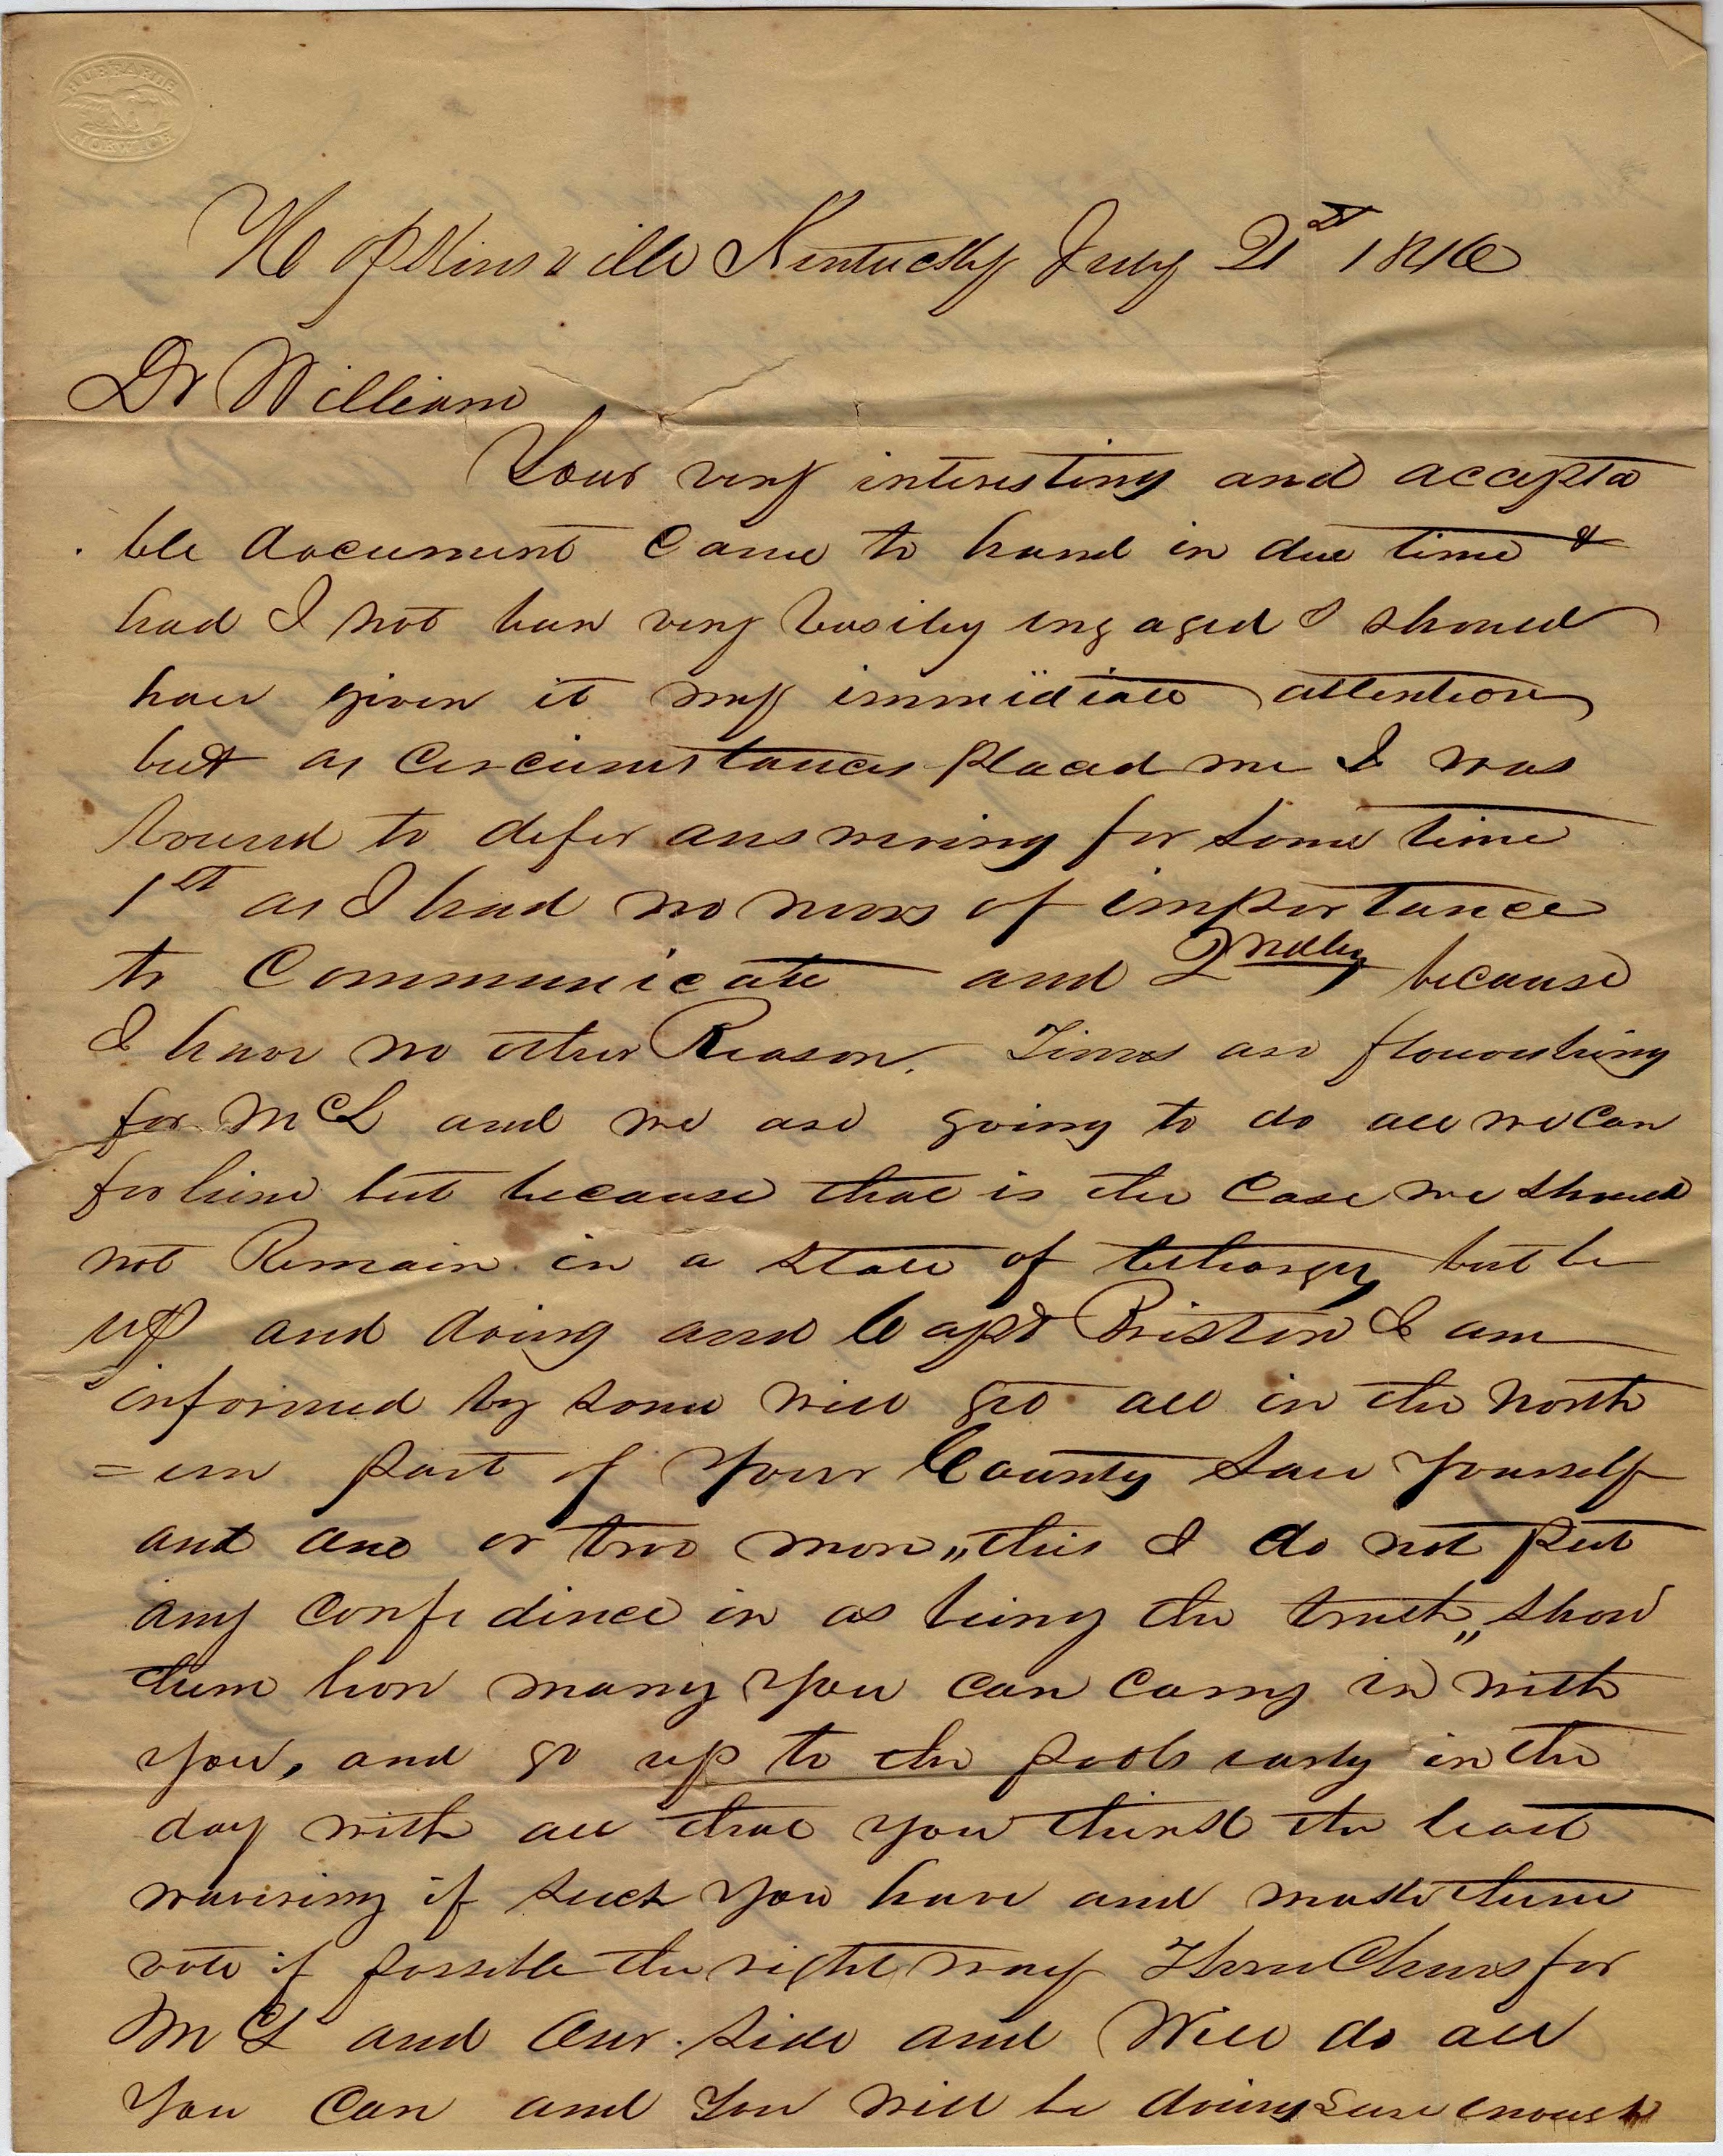 HUBBARD
NORWICH
Hopkinsville Kentucky July 21st 1846
Dr William
Your very interesting and accepta
ble document Came to hand in due time &
had I not ben very busiley engaged I should
have given it my immidiate attention
but as Circumstances placed me I was
bound to defer answering for some time
1st as I had no news of importance
to Communicate and 2ndley because
I have no other Reason. Times are flourishing
for McL and we are going to do all we Can
for him but because that is the Case we should
not Remain in a state of lethargy but be
up and doing and Capt Priston I am
informed by some will get all in the North
=ern part of your County save yourself
and one or two more „this I do not put
any confidince in as being the truth„ show
them how many you can carry in with
you, and go up to the pools early in the
day with all that you think the least
wavering if such you have and make them
vote if possible the right way Three Chears for
McL and Our side and Will do all
You Can and You will be doing Sure enough